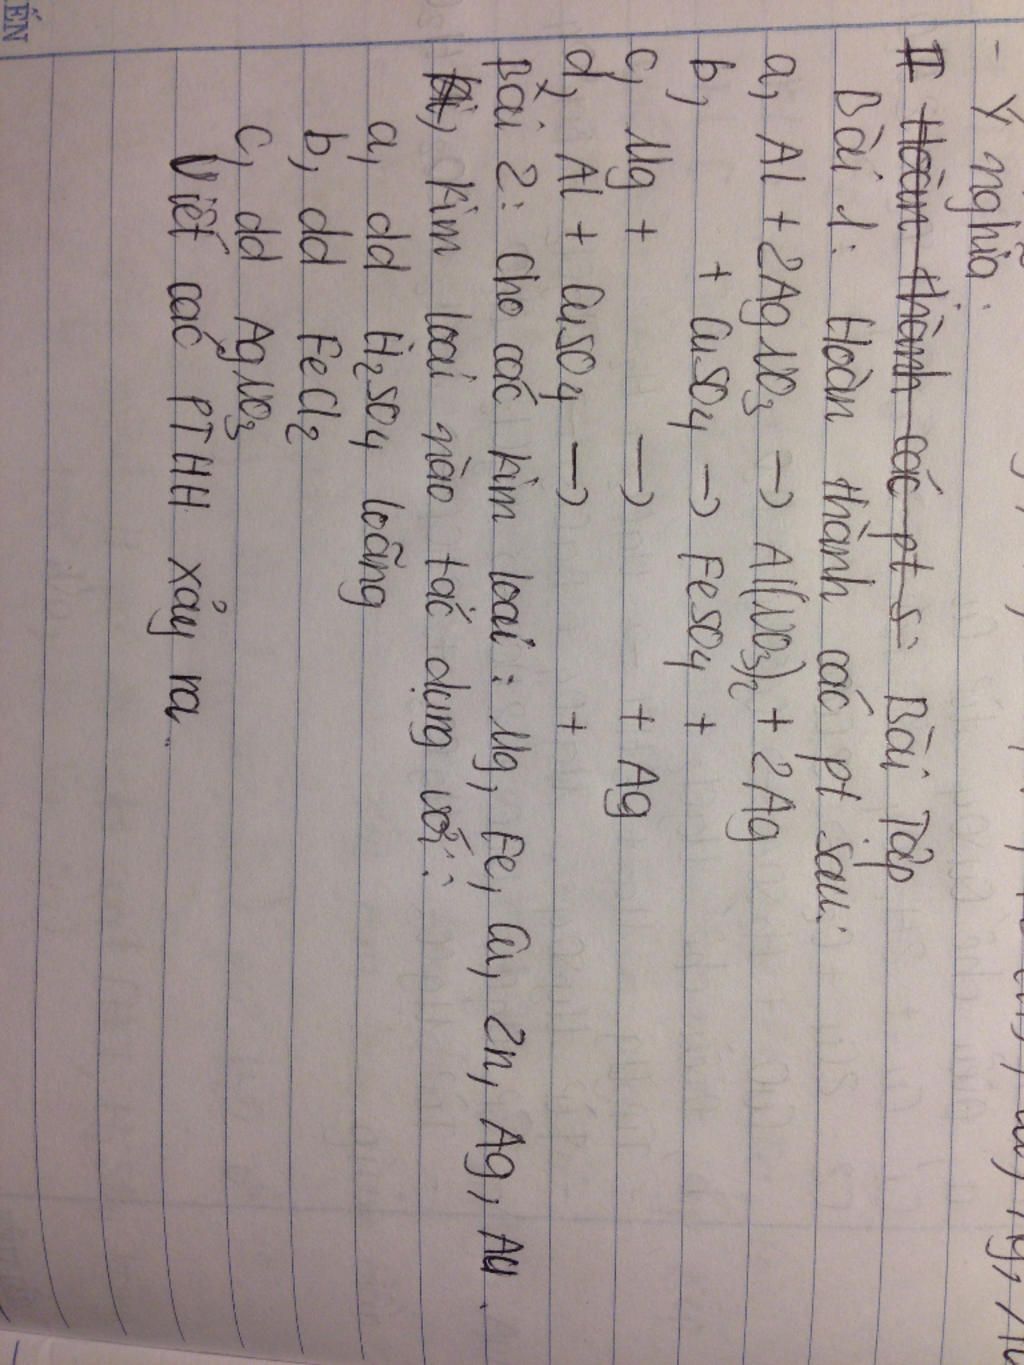 - Ý nghĩa.
II Hoàn thành các pt s: Bài Tập
Bài 1: Hoàn thành các pt sau:
a, Al + 2AgNO3 → Al(NO3)2 + 2Ag
b, + CuSO4 → FeSO4 +
c, Mg + → + Ag
d, Al + CuSO4 → +
Bài 2: Cho các kim loại: Mg, Fe, Cu, Zn, Ag, Au.
Kim loại nào tác dụng với:
a, dd H2SO4 loãng
b, dd FeCl2
c, dd AgNO3
Viết các PTHH xảy ra.
ẾN